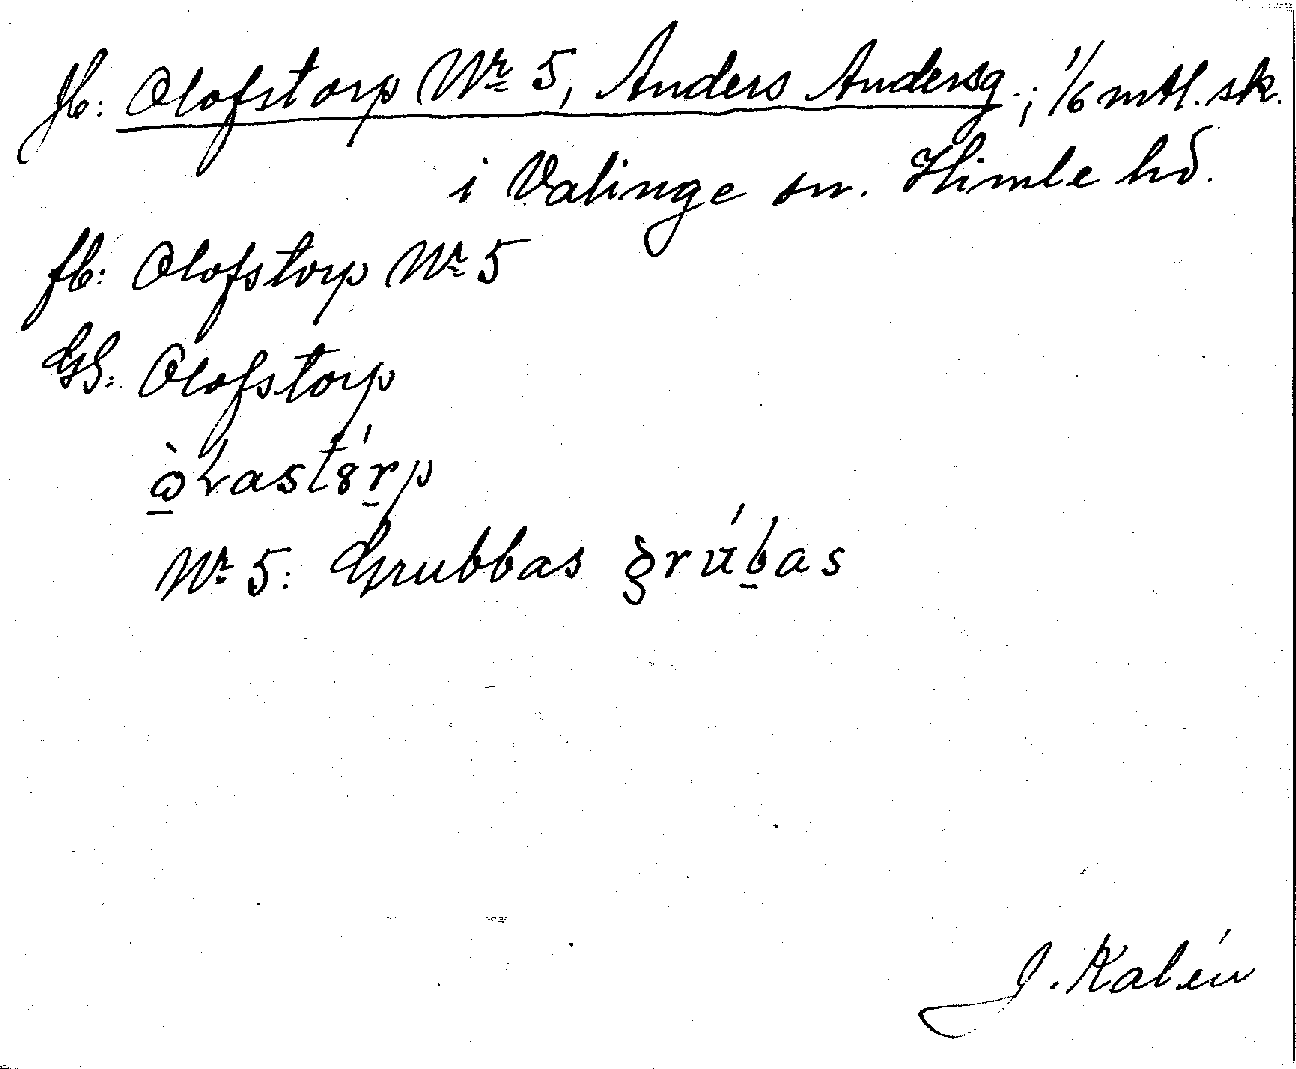 Jb: Olofstorp Nr 5, Anders Andersg.; 1/6 mtl. sk.
i Valinge sn. Himle hd.
fb: Olofstorp Nr 5
GS: Olofstorp
Nr 5: Grubbas
J. Kalén